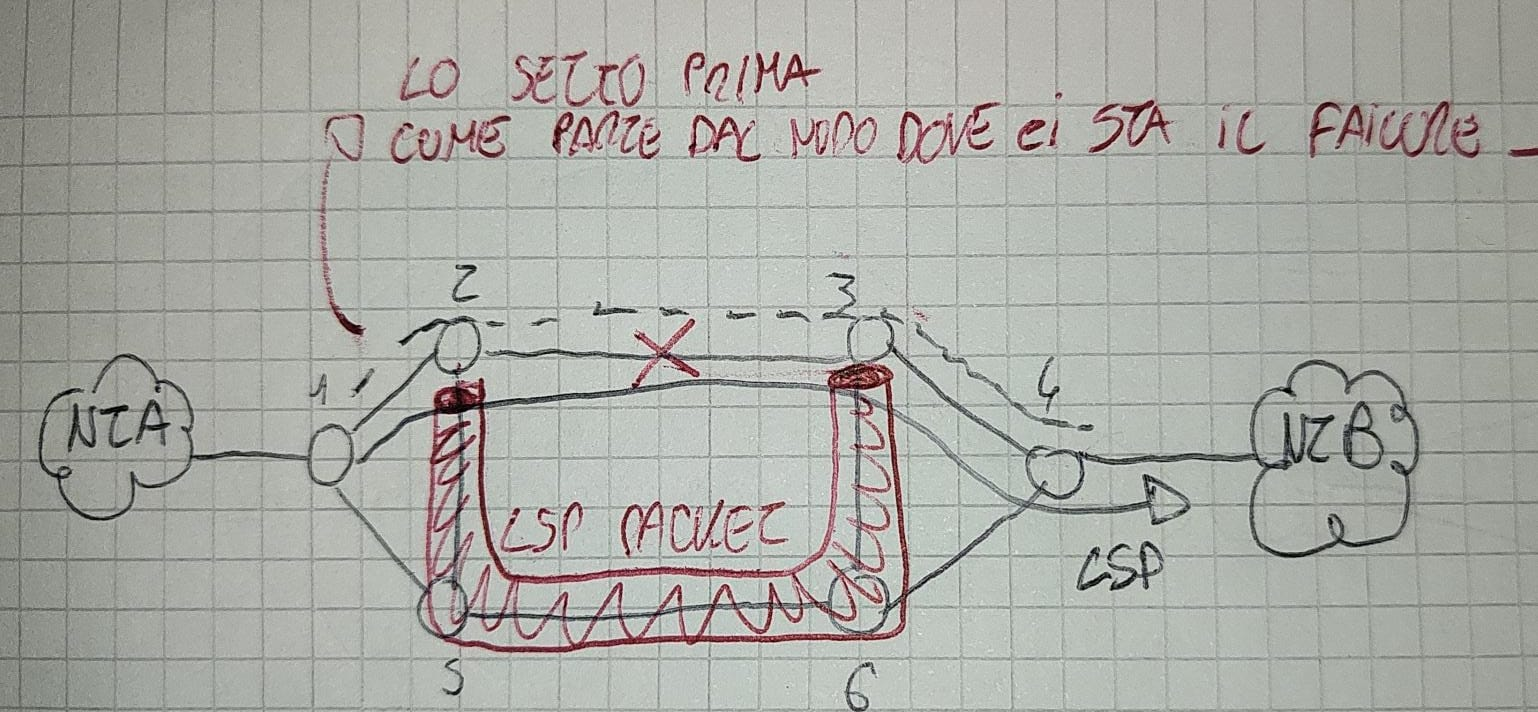 LO SETTO PRIMA
COME PARTE DAL NODO DOVE CI STA IL FAILURE
2
3
1
4
NTA
NTB
LSP PACKET
LSP
5
6